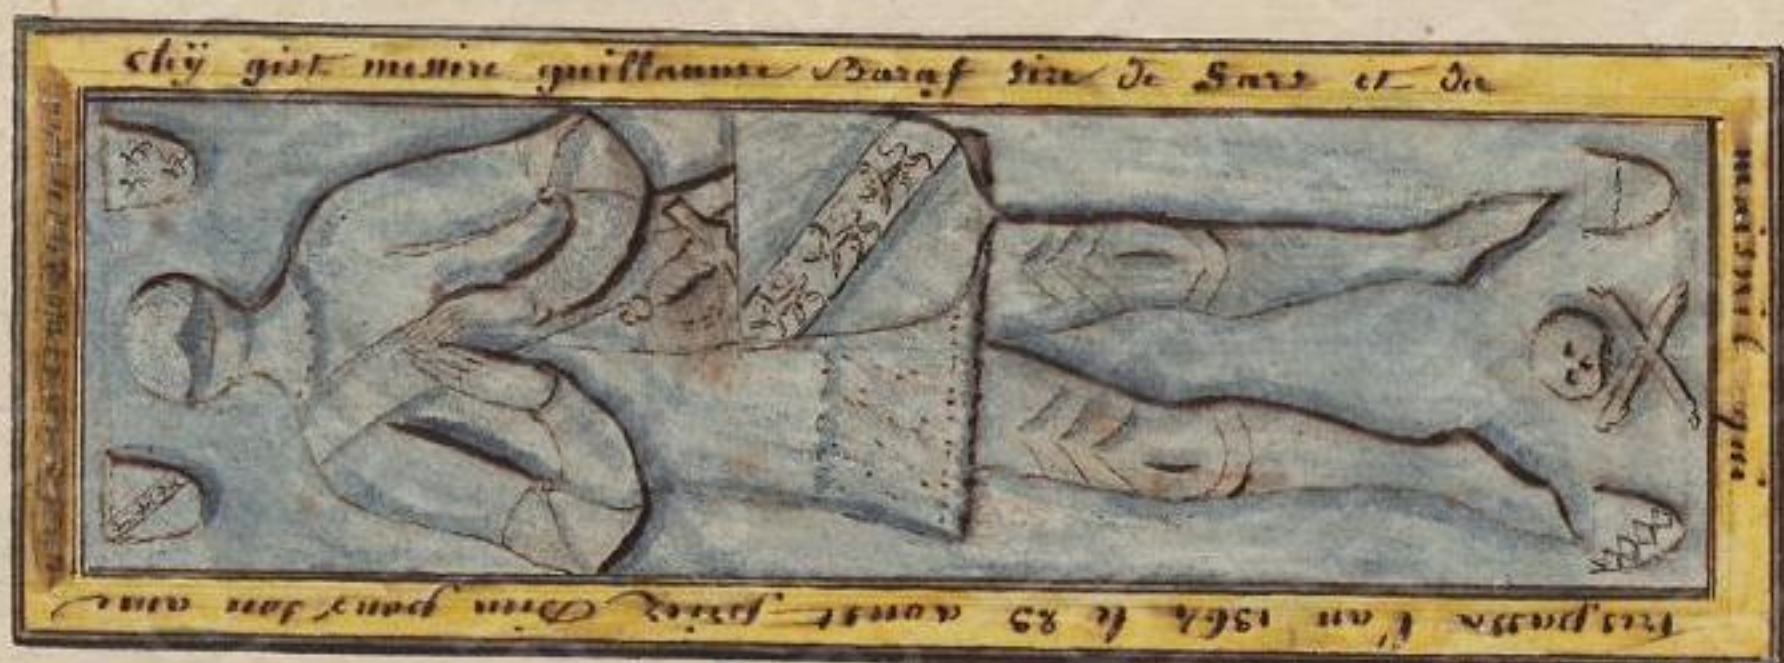 chÿ gist messire guillaume Baraf sire de Sars et de
maisnil qui
trespassa l'an 1364 le 29 aoust priez Dieu pour son ame